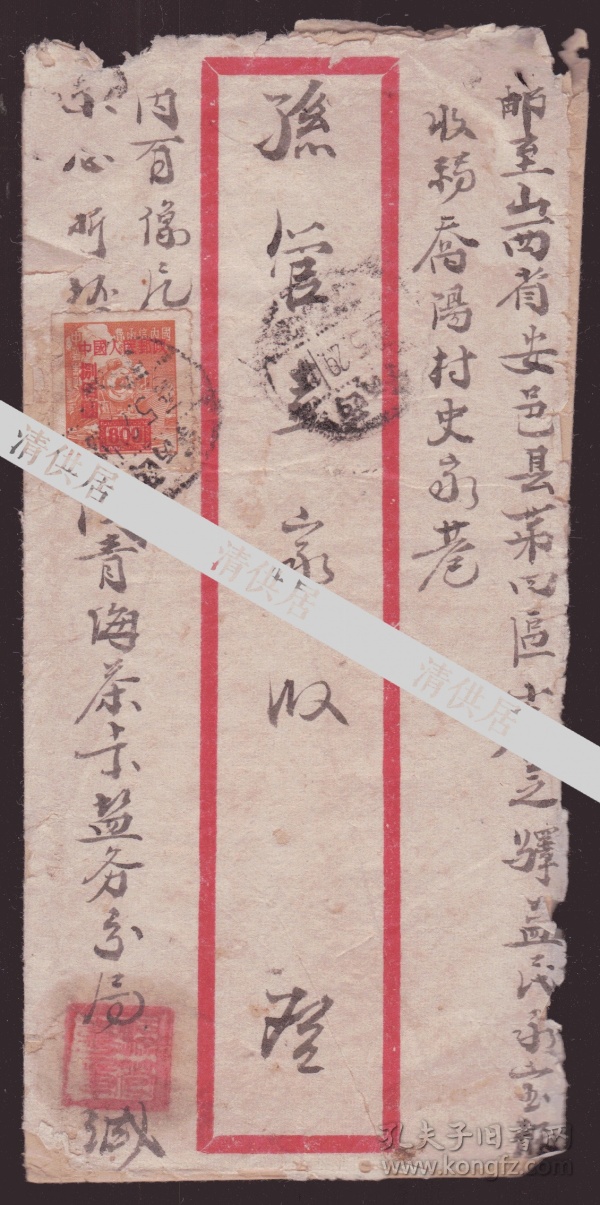 邮至山西省安邑县第四區
之驛益民永宝號
收轉喬陽村史家巷
孫管
家收
啓
内有像片
小心折
青海茶卡盐务分局
缄
中國人民郵政
800
5
5 29
清供居
清供居
清供居
孔夫子旧书网
www.kongfz.com